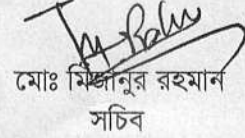 মোঃ মিজানুর রহমান
সচিব